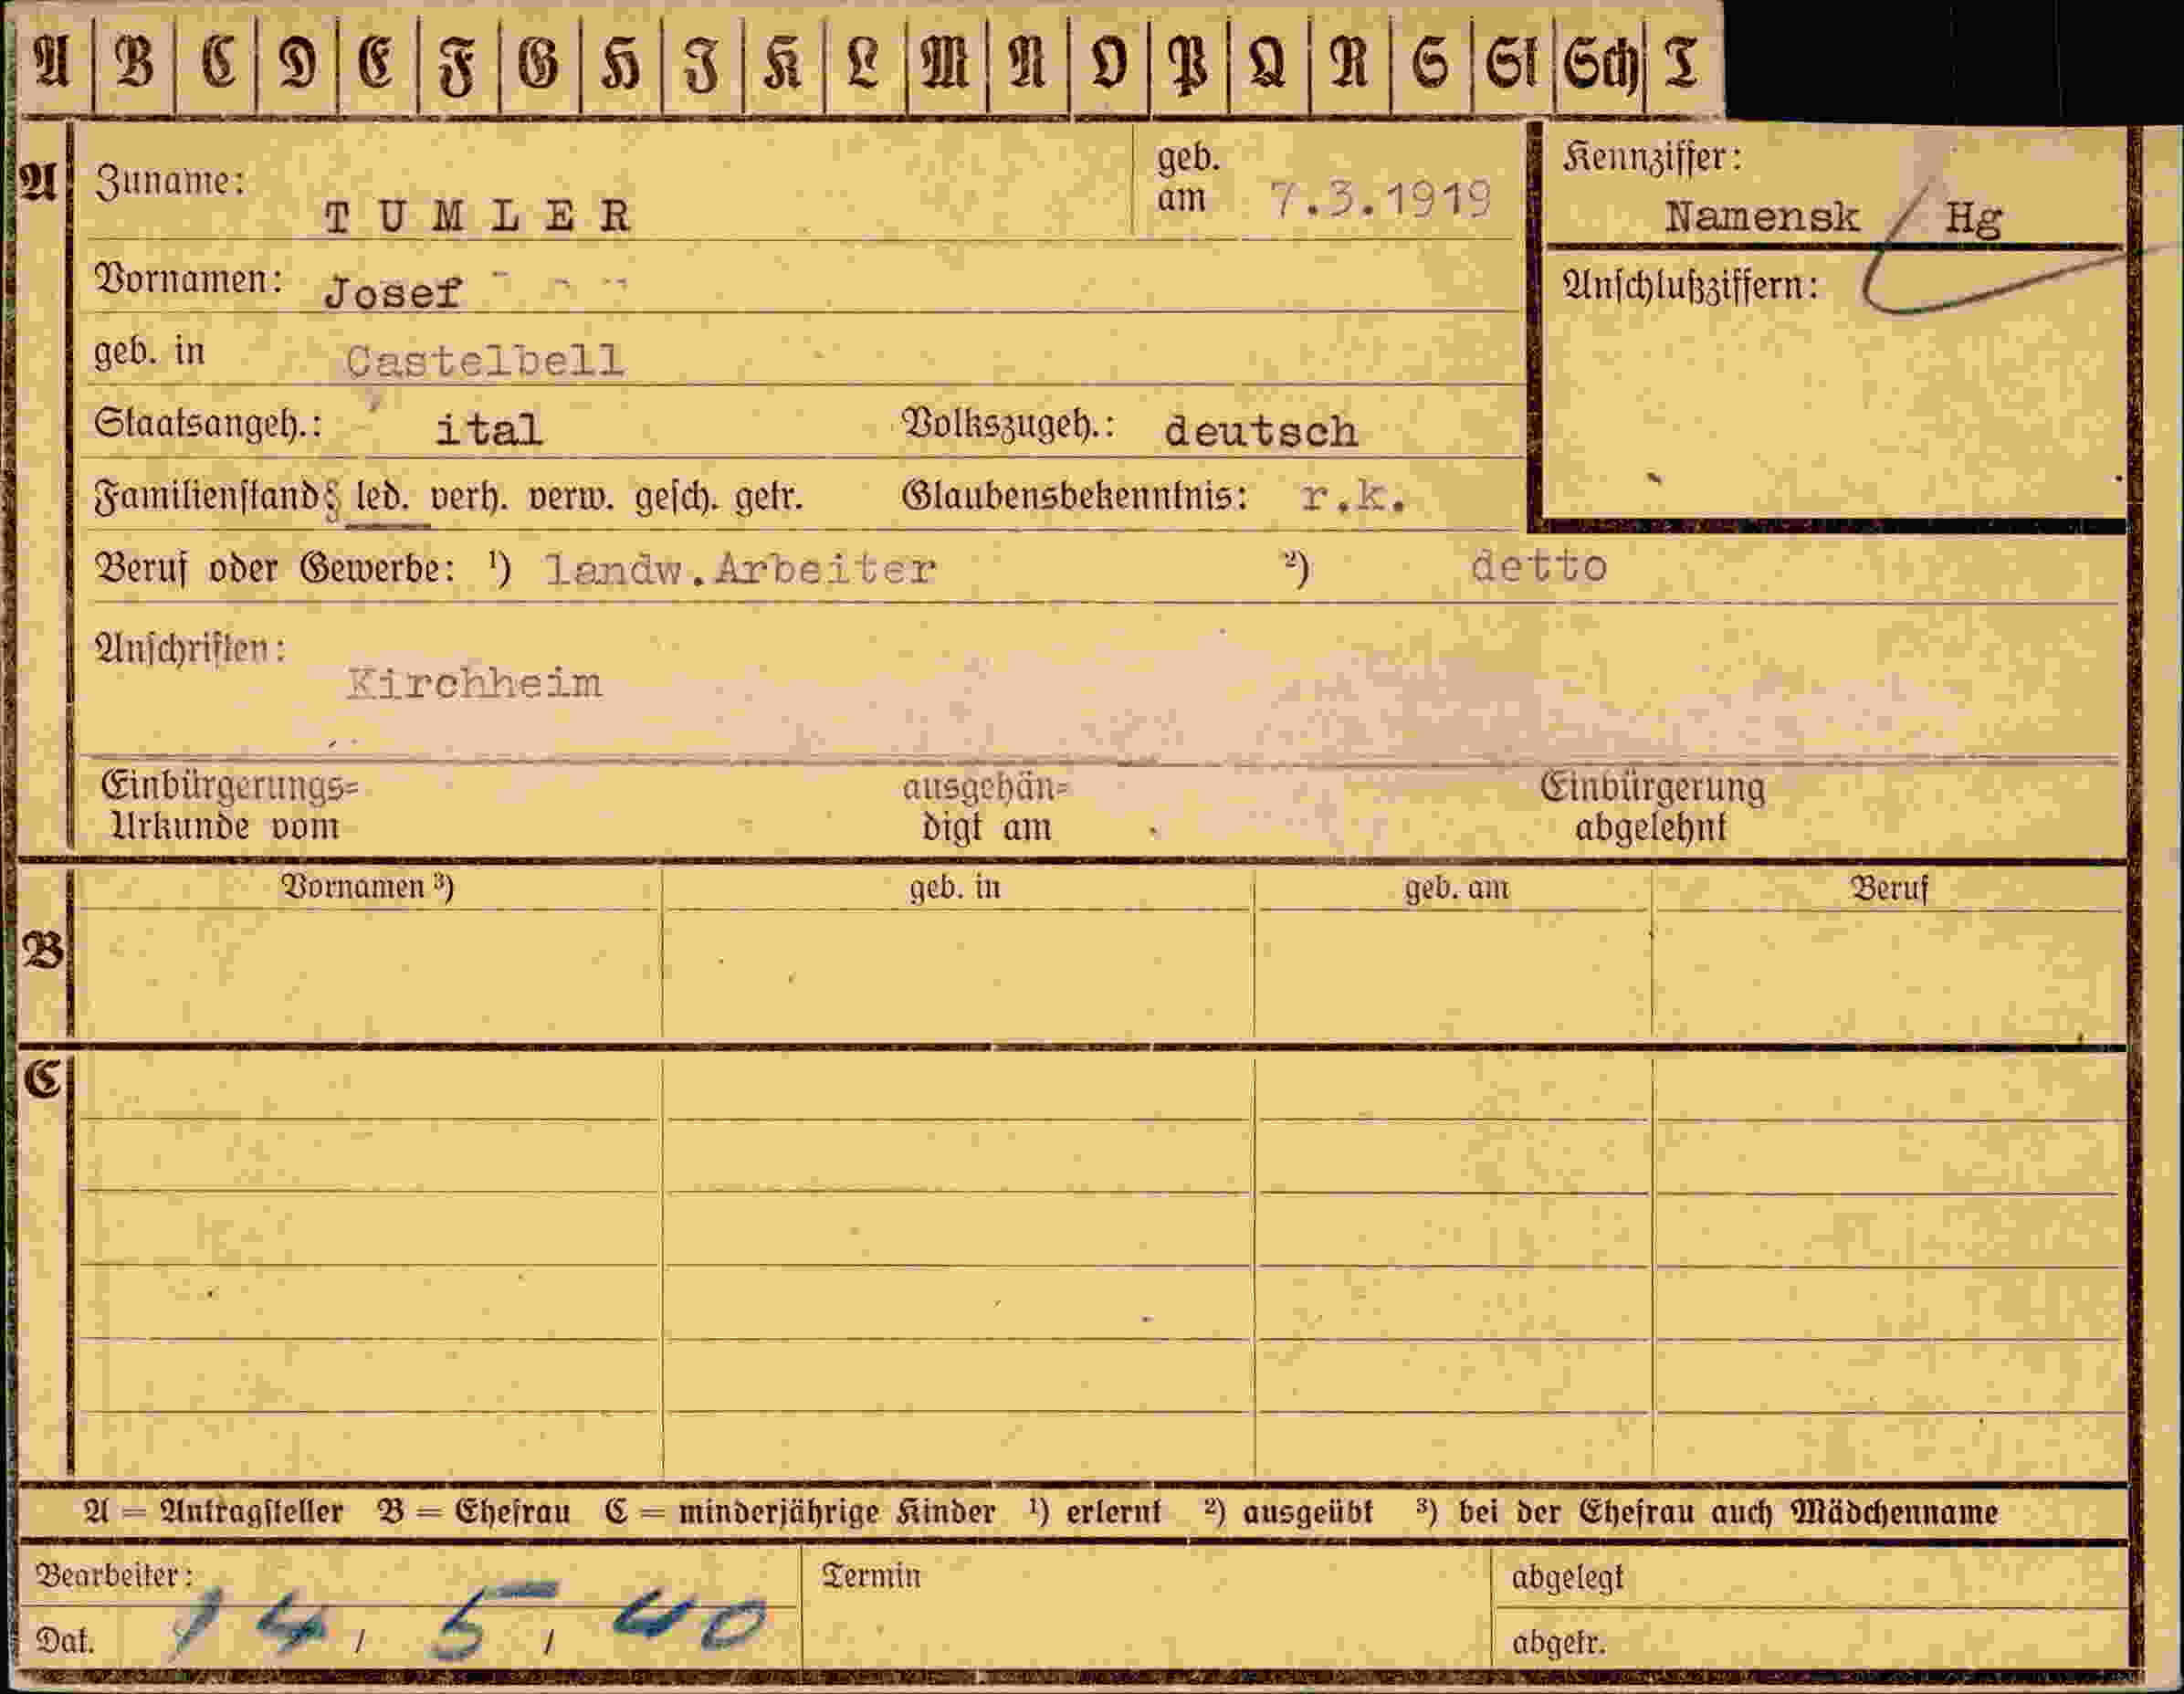 A B C D E F G H I K L M N O P Q R S St Sch T
A Zuname: TUMLER geb. am 7.3.1919 Kennziffer: Namensk / Hg
Vornamen: Josef Anschlußziffern:
geb. in Castelbell
Staatsangeh.: ital Volkszugeh.: deutsch
Familienstand: led. verh. verw. gesch. getr. Glaubensbekenntnis: r.k.
Beruf oder Gewerbe: ¹) landw.Arbeiter ²) detto
Anschriften:
Kirchheim
Einbürgerungs= ausgehän= Einbürgerung
Urkunde vom digt am abgelehnt
Vornamen ³) geb. in geb. am Beruf
B
C
A = Antragsteller B = Ehefrau C = minderjährige Kinder ¹) erlernt ²) ausgeübt ³) bei der Ehefrau auch Mädchenname
Bearbeiter: Termin abgelegt
Dat. 14 / 5 / 40 abgetr.